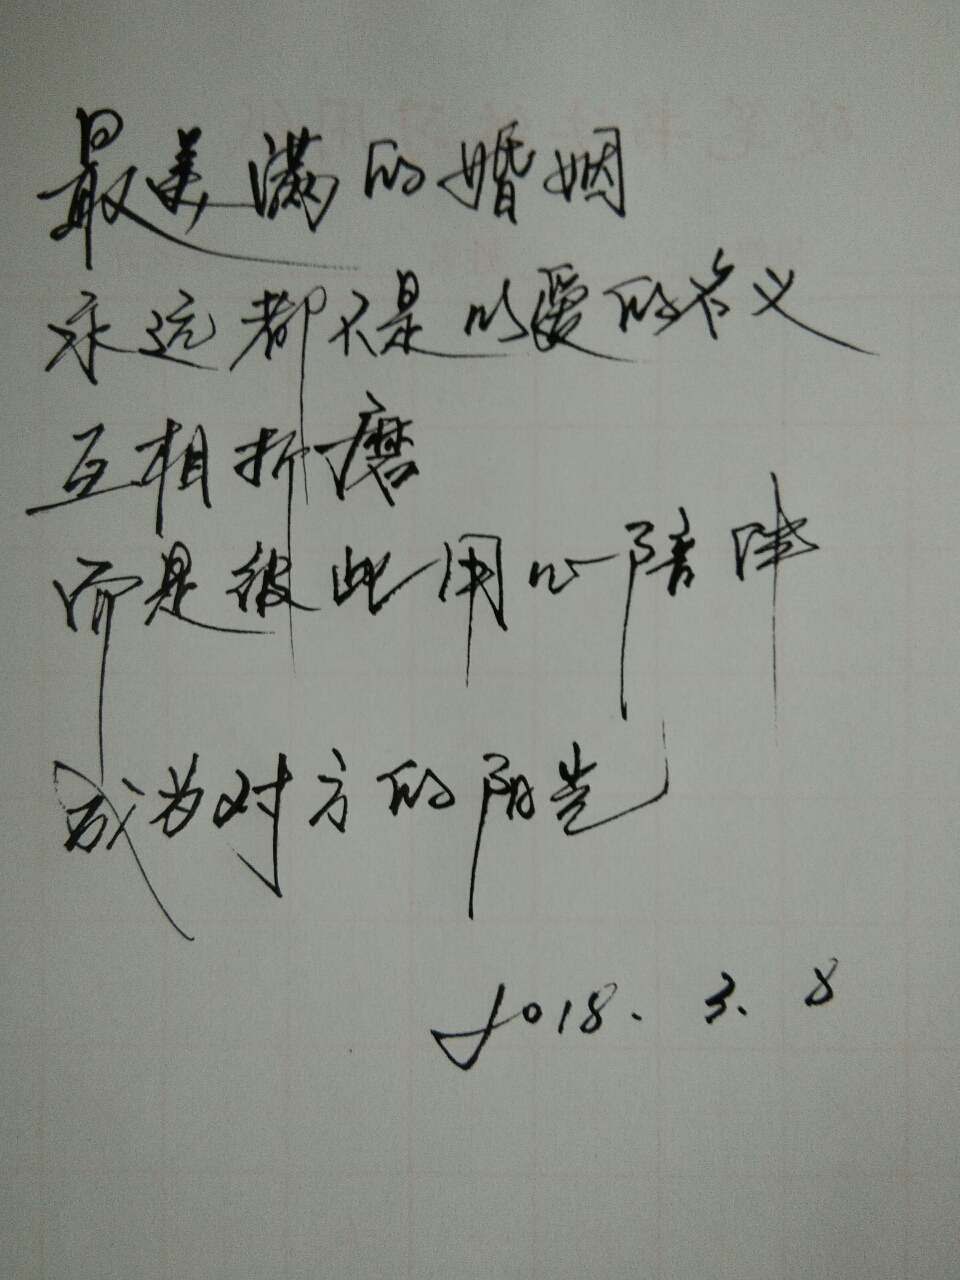 最美满的婚姻
永远都不是以爱的名义
互相折磨
而是彼此用心陪伴
成为对方的阳光
2018.3.8